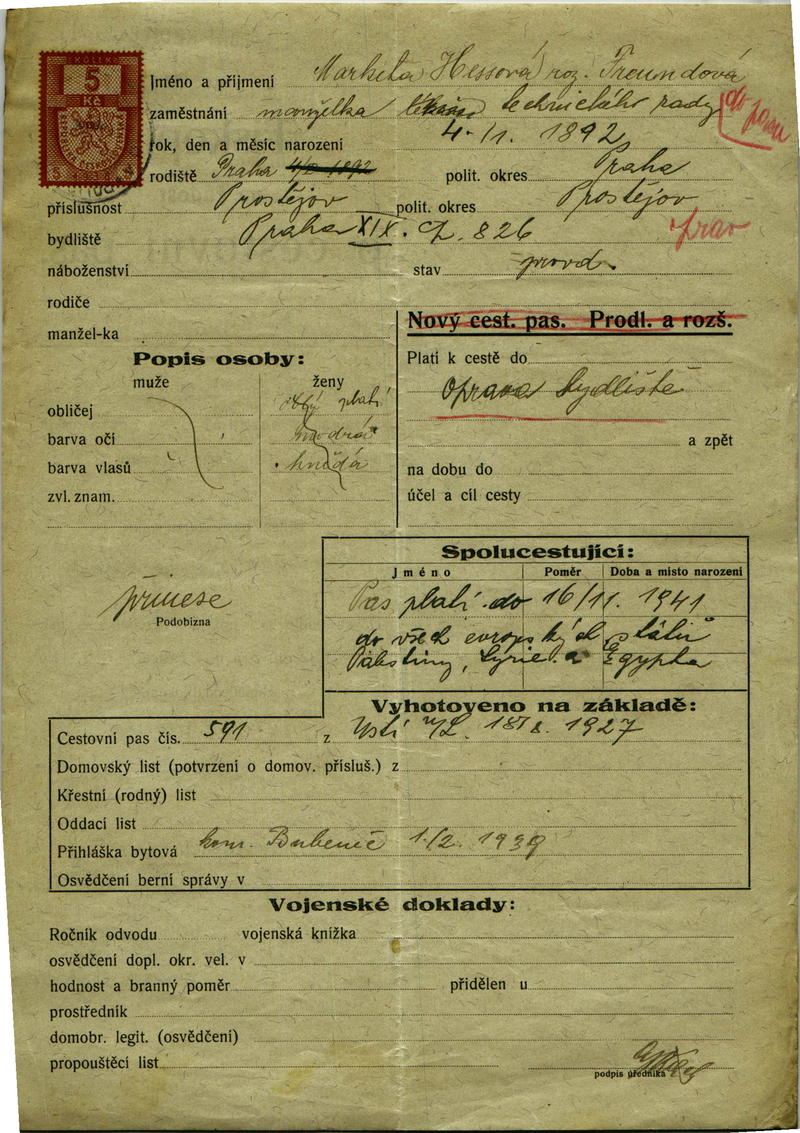 KOLEK
5
Kč
Jméno a příjmení Marketa Hessová roz. Freundová
zaměstnání manželka technického rady
do pasu
rok, den a měsíc narození 4. 11. 1892
rodiště Praha polit. okres Praha
příslušnost Prostějov polit. okres Prostějov
bydliště Praha XIX. čp. 826
náboženství stav provd.
rodiče
manžel-ka
Nový cest. pas. Prodl. a rozš.
Popis osoby:
Platí k cestě do
muže ženy
oprava bydliště
obličej
barva očí modrá
a zpět
barva vlasů hnědá
na dobu do
zvl. znam.
účel a cíl cesty
Spolucestující:
Jméno Poměr Doba a místo narození
Pas platí do 16/11. 1941
do všech evropských států
Palestiny, Syrie a Egypta
přinese
Podobizna
Vyhotoveno na základě:
Cestovní pas čís. 591 z Ústí n/L. 18/8. 1927
Domovský list (potvrzení o domov. přísluš.) z
Křestní (rodný) list
Oddací list
Přihláška bytová kom. Bubeneč 1/2. 1939
Osvědčení berní správy v
Vojenské doklady:
Ročník odvodu vojenská knížka
osvědčení dopl. okr. vel. v
hodnost a branný poměr přidělen u
prostředník
domobr. legit. (osvědčení)
propouštěcí list
podpis úředníka